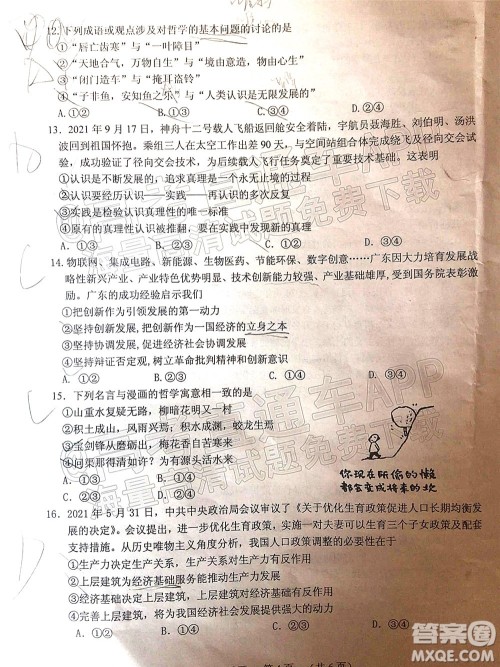 12. 下列成语或观点涉及对哲学的基本问题的讨论的是
①“唇亡齿寒”与“一叶障目”
②“天地合气，万物自生”与“境由意造，物由心生”
③“闭门造车”与“掩耳盗铃”
④“子非鱼，安知鱼之乐”与“人类认识是无限发展的”
A. ①② B. ①③ C. ③④ D. ②④
13. 2021 年 9 月 17 日，神舟十二号载人飞船返回舱安全着陆，宇航员聂海胜、刘伯明、汤洪
波回到祖国怀抱。乘组三人在太空工作出差 90 天，与空间站组合体完成绕飞及径向交会试
验，成功验证了径向交会技术，为后续载人飞行任务奠定了重要技术基础。这表明
①认识是不断发展的，追求真理是永无止境的过程
②认识要经历认识——实践——再认识的多次反复
③实践是检验认识真理性的唯一标准
④原有的真理性认识被推翻，新的真理产生
A. ①② B. ①③ C. ②③ D. ②④
14. 物联网、集成电路、新能源、生物医药、节能环保、数字创意……广东因大力培育发展战
略性新兴产业、产业特色优势明显、技术创新能力较强、产业基础雄厚，受到国务院表彰激
励。广东的成功经验启示我们
①把创新作为引领发展的第一动力
②坚持创新发展，把创新作为一国经济的立身之本
③坚持协调发展，促进经济社会创新发展
④坚持辩证否定观，树立革命批判精神和创新意识
A. ①② B. ②③ C. ③④ D. ①④
15. 下列名言与漫画的哲学寓意相一致的是
①山重水复疑无路，柳暗花明又一村
②积土成山，风雨兴焉；积水成渊，蛟龙生焉
③宝剑锋从磨砺出，梅花香自苦寒来
④问渠那得清如许？为有源头活水来
A. ①② B. ①④ C. ②③ D. ③④
你现在所偷的懒
都会变成将来的坎
16. 2021 年 5 月 31 日，中共中央政治局会议审议了《关于优化生育政策促进人口长期均衡发
展的决定》。会议提出，进一步优化生育政策，实施一对夫妻可以生育三个子女政策及配套
支持措施。从历史唯物主义角度分析，我国人口政策调整的必要性在于
①生产力决定生产关系，生产关系对生产力有反作用
②上层建筑为经济基础服务能推动生产力发展
③经济基础决定上层建筑，上层建筑对经济基础有反作用
④完善上层建筑，会增强社会发展的动力
A. ①② B. ①③ C. ②④ D. ③④
答案圈